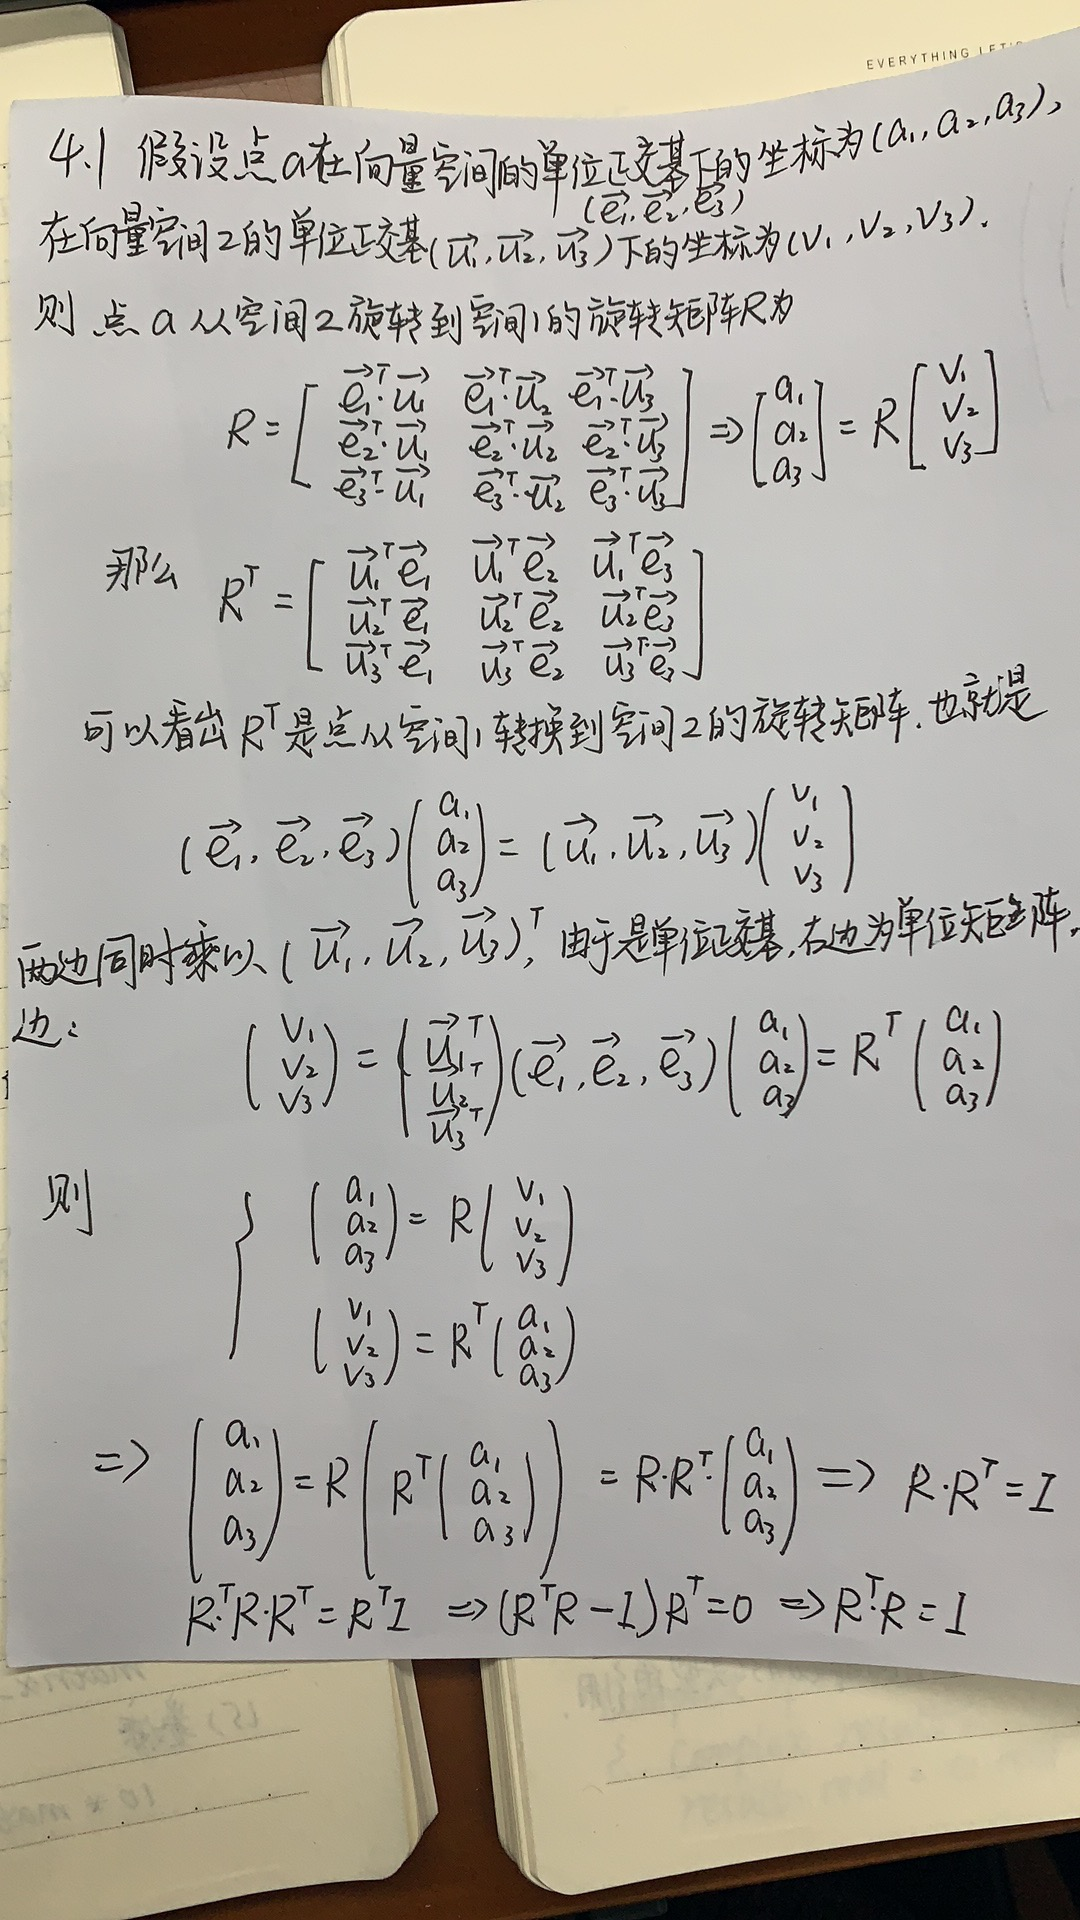 EVERYTHING
4.1 假设点a在向量空间的单位正交基下的坐标为(a₁,a₂,a₃),
(e₁⃗,e₂⃗,e₃⃗)
在向量空间2的单位正交基(u₁⃗,u₂⃗,u₃⃗)下的坐标为(v₁,v₂,v₃).
则 点a从空间2旋转到空间1的旋转矩阵R为
R = [ e₁⃗ᵀ·u₁⃗ e₁⃗ᵀ·u₂⃗ e₁⃗ᵀ·u₃⃗ ; e₂⃗ᵀ·u₁⃗ e₂⃗ᵀ·u₂⃗ e₂⃗ᵀ·u₃⃗ ; e₃⃗ᵀ·u₁⃗ e₃⃗ᵀ·u₂⃗ e₃⃗ᵀ·u₃⃗ ] => [ a₁ ; a₂ ; a₃ ] = R [ v₁ ; v₂ ; v₃ ]
那么 Rᵀ = [ u₁⃗ᵀe₁⃗ u₁⃗ᵀe₂⃗ u₁⃗ᵀe₃⃗ ; u₂⃗ᵀe₁⃗ u₂⃗ᵀe₂⃗ u₂⃗ᵀe₃⃗ ; u₃⃗ᵀe₁⃗ u₃⃗ᵀe₂⃗ u₃⃗ᵀe₃⃗ ]
可以看出Rᵀ是点从空间1转换到空间2的旋转矩阵.也就是
(e₁⃗,e₂⃗,e₃⃗)( a₁ ; a₂ ; a₃ ) = (u₁⃗,u₂⃗,u₃⃗)( v₁ ; v₂ ; v₃ )
两边同时乘以(u₁⃗,u₂⃗,u₃⃗)ᵀ, 由于是单位正交基,右边为单位矩阵,
边:
( v₁ ; v₂ ; v₃ ) = ( u₁⃗ᵀ ; u₂⃗ᵀ ; u₃⃗ᵀ )(e₁⃗,e₂⃗,e₃⃗)( a₁ ; a₂ ; a₃ ) = Rᵀ( a₁ ; a₂ ; a₃ )
则 { ( a₁ ; a₂ ; a₃ ) = R( v₁ ; v₂ ; v₃ )
( v₁ ; v₂ ; v₃ ) = Rᵀ( a₁ ; a₂ ; a₃ )
=> ( a₁ ; a₂ ; a₃ ) = R( Rᵀ( a₁ ; a₂ ; a₃ ) ) = R·Rᵀ·( a₁ ; a₂ ; a₃ ) => R·Rᵀ = I
Rᵀ·R·Rᵀ = RᵀI => (RᵀR - I)Rᵀ = 0 => Rᵀ·R = I